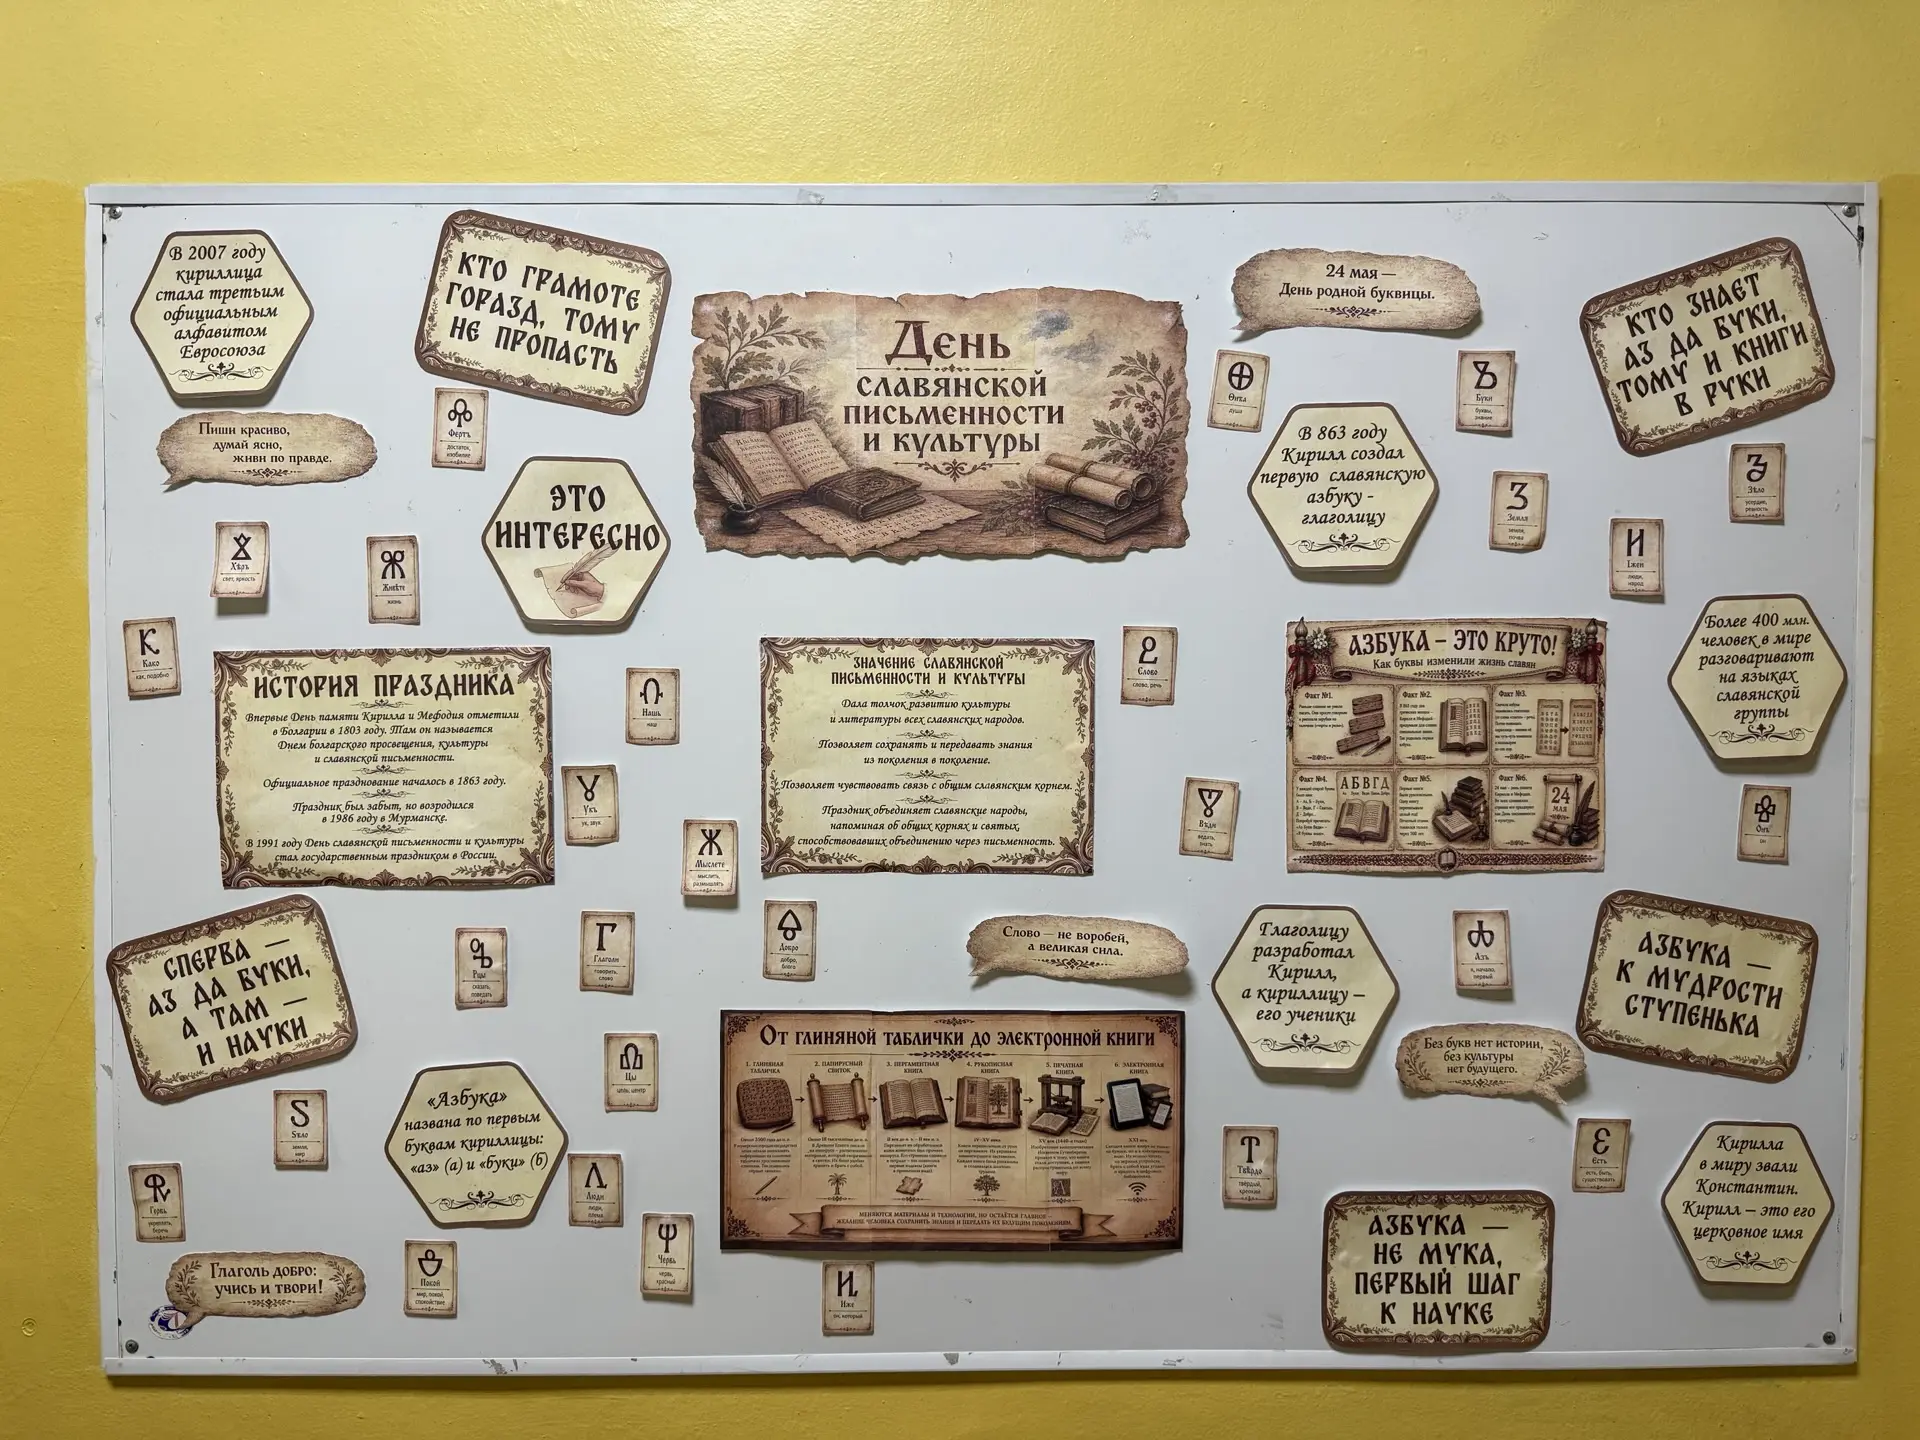 В 2007 году
кириллица
стала третьим
официальным
алфавитом
Евросоюза
КТО ГРАМОТЕ
ГОРАЗД, ТОМУ
НЕ ПРОПАСТЬ
День
СЛАВЯНСКОЙ
ПИСЬМЕННОСТИ
И КУЛЬТУРЫ
24 мая —
День родной буквицы.
КТО ЗНАЕТ
АЗ ДА БУКИ,
ТОМУ И КНИГИ
В РУКИ
Пиши красиво,
думай ясно,
живи по правде.
Фертъ
достаток,
изобилие
ЭТО
ИНТЕРЕСНО
Ѳита
душа
Буки
буквы,
знание
В 863 году
Кирилл создал
первую славянскую
азбуку -
глаголицу
Земля
земля,
почва
Зѣло
усердие,
ревность
И
Іжеи
люди,
народ
Хѣръ
свет, яркость
Живѣте
жизнь
К
Како
как, подобно
ИСТОРИЯ ПРАЗДНИКА
Впервые День памяти Кирилла и Мефодия отметили
в Болгарии в 1803 году. Там он называется
Днем болгарского просвещения, культуры
и славянской письменности.
Официальное празднование началось в 1863 году.
Праздник был забыт, но возродился
в 1986 году в Мурманске.
В 1991 году День славянской письменности и культуры
стал государственным праздником в России.
Нашъ
наш
Укъ
ук, звук
Ж
Мыслете
мыслить,
размышлять
ЗНАЧЕНИЕ СЛАВЯНСКОЙ
ПИСЬМЕННОСТИ И КУЛЬТУРЫ
Дала толчок развитию культуры
и литературы всех славянских народов.
Позволяет сохранять и передавать знания
из поколения в поколение.
Позволяет чувствовать связь с общим славянским корнем.
Праздник объединяет славянские народы,
напоминая об общих корнях и святых,
способствовавших объединению через письменность.
Слово
слово, речь
Вѣди
ведать,
знать
АЗБУКА – ЭТО КРУТО!
Как буквы изменили жизнь славян
Факт №1.
Факт №2.
Факт №3.
Факт №4.
АБВГД
Факт №5.
Факт №6.
24
МАЯ
Более 400 млн.
человек в мире
разговаривают
на языках
славянской
группы
Онъ
он
СПЕРВА —
АЗ ДА БУКИ,
А ТАМ —
И НАУКИ
Рцы
сказать,
поведать
Г
Глаголи
говорить,
слово
Добро
добро,
благо
Слово — не воробей,
а великая сила.
Глаголицу
разработал
Кирилл,
а кириллицу –
его ученики
Азъ
я, начало,
первый
АЗБУКА —
К МУДРОСТИ
СТУПЕНЬКА
Без букв нет истории,
без культуры
нет будущего.
Цы
цель, центр
«Азбука»
названа по первым
буквам кириллицы:
«аз» (а) и «буки» (б)
Ѕ
Ѕѣло
земля,
мир
Гервь
укреплять,
беречь
Л
Люди
люди,
племя
Ψ
Червь
червь,
красный
Покой
мир, покой,
спокойствие
Глаголь добро:
учись и твори!
От глиняной таблички до электронной книги
1. ГЛИНЯНАЯ
ТАБЛИЧКА
2. ПАПИРУСНЫЙ
СВИТОК
3. ПЕРГАМЕНТНАЯ
КНИГА
4. РУКОПИСНАЯ
КНИГА
5. ПЕЧАТНАЯ
КНИГА
6. ЭЛЕКТРОННАЯ
КНИГА
XXI век
МЕНЯЮТСЯ МАТЕРИАЛЫ И ТЕХНОЛОГИИ, НО ОСТАЁТСЯ ГЛАВНОЕ –
ЖЕЛАНИЕ ЧЕЛОВЕКА СОХРАНИТЬ ЗНАНИЯ И ПЕРЕДАТЬ ИХ БУДУЩИМ ПОКОЛЕНИЯМ.
Иже
он, который
Т
Твёрдо
твердый,
крепкий
Є
Єсть
есть, быть,
существовать
АЗБУКА —
НЕ МУКА,
ПЕРВЫЙ ШАГ
К НАУКЕ
Кирилла
в миру звали
Константин.
Кирилл – это его
церковное имя